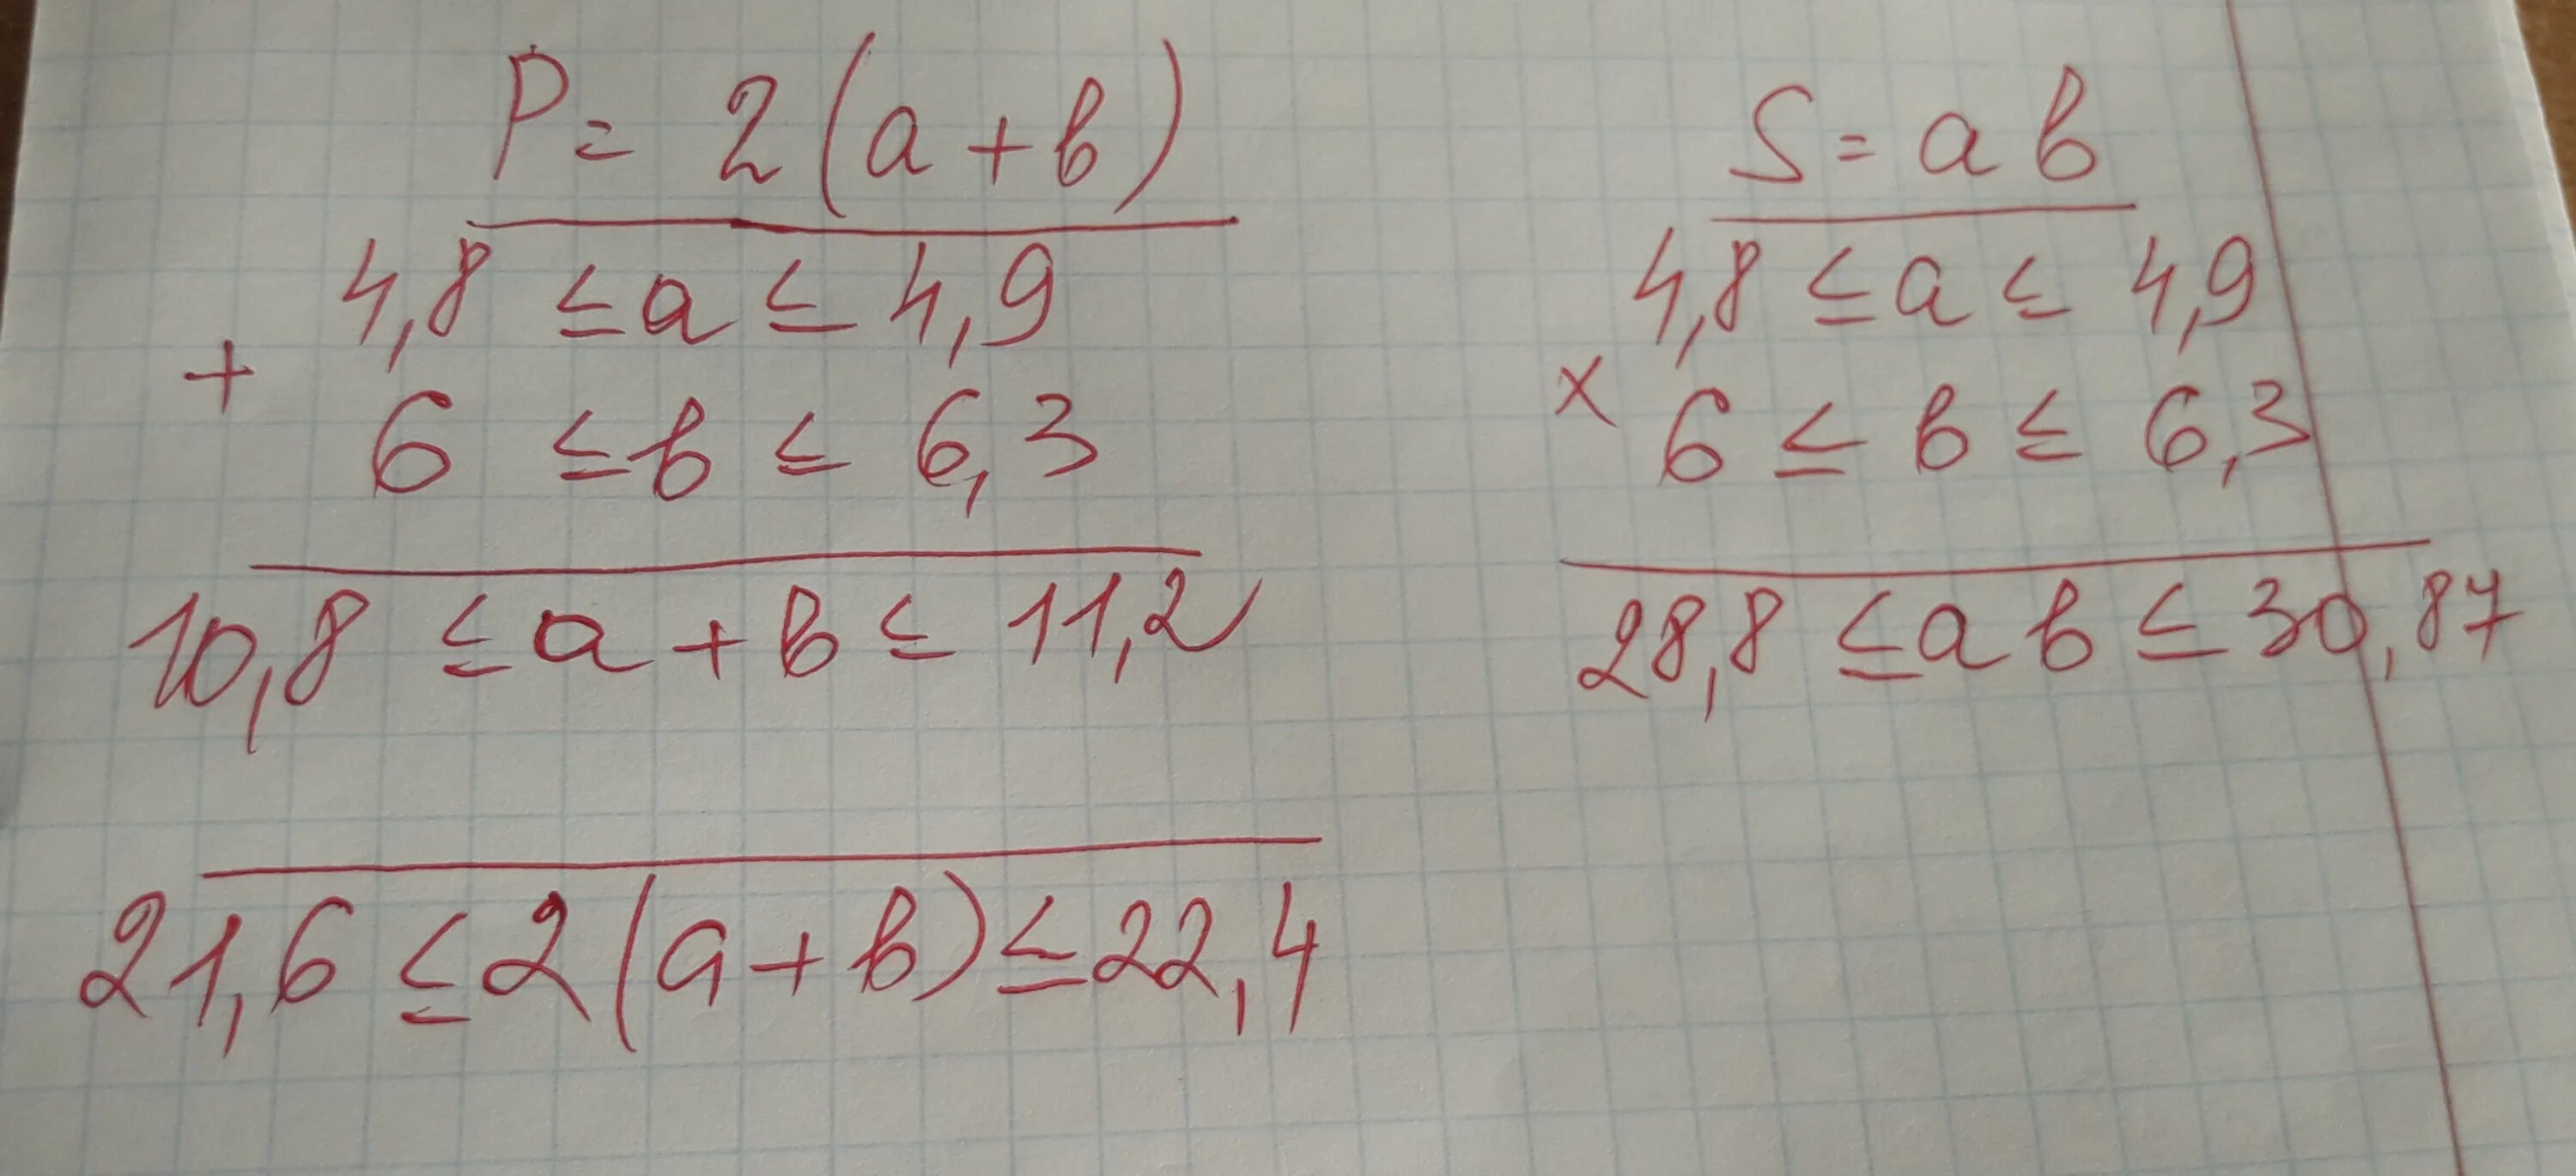 P = 2(a + b)
4,8 ≤ a ≤ 4,9
+
6 ≤ b ≤ 6,3
10,8 ≤ a + b ≤ 11,2
21,6 ≤ 2(a + b) ≤ 22,4
S = a b
4,8 ≤ a ≤ 4,9
x
6 ≤ b ≤ 6,3
28,8 ≤ a b ≤ 30,87